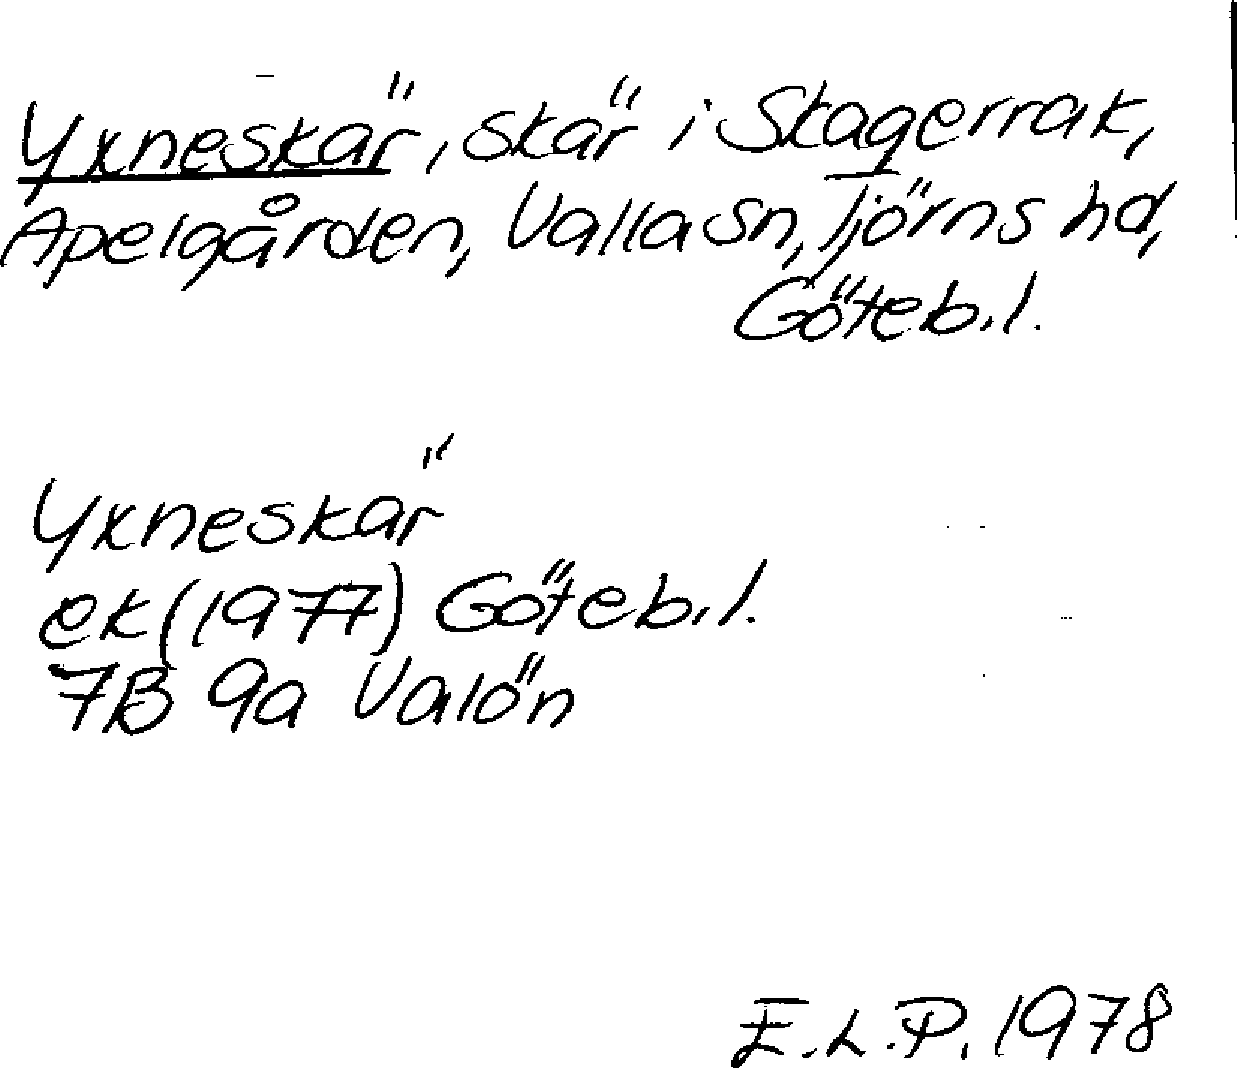 Yxneskär, skär i Skagerrak,
Apelgården, Valla sn, Tjörns hd,
Göteb.l.
Yxneskär
ek (1977) Göteb.l.
7B 9a Valön
E.L.P. 1978